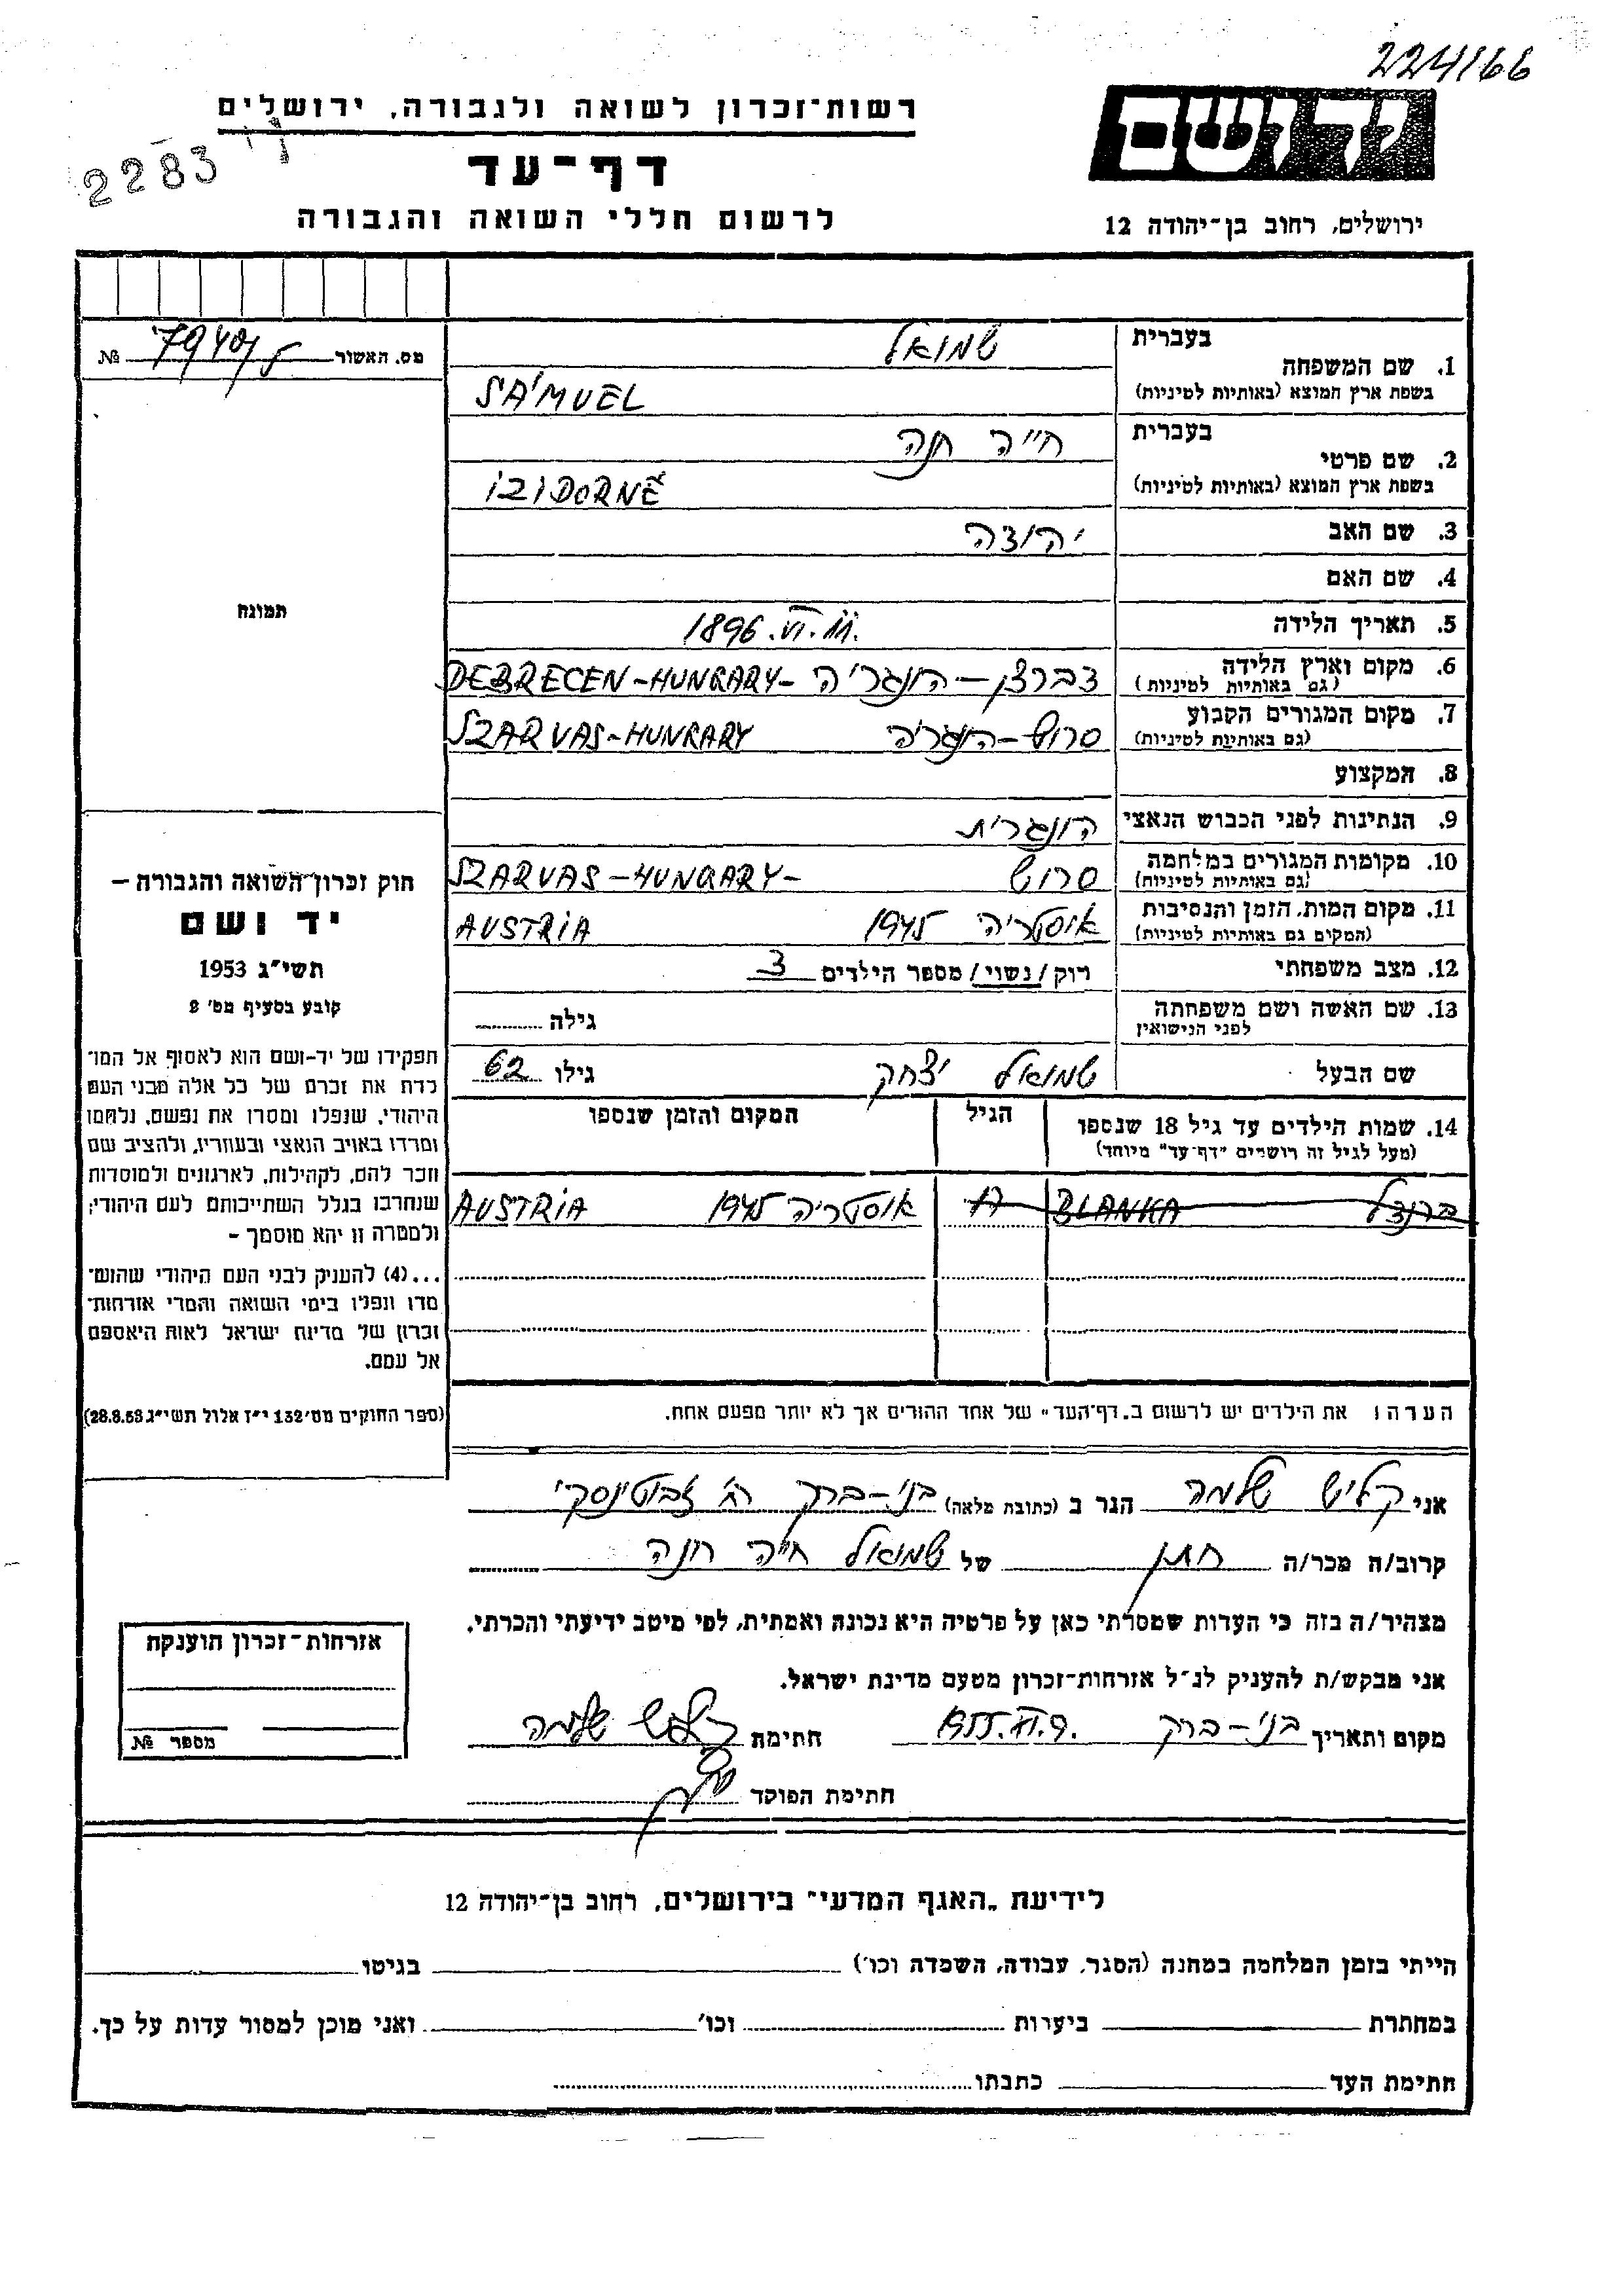 224/66
יד ושם
רשות-זכרון לשואה ולגבורה, ירושלים
דף-עד
2283
לרשום חללי השואה והגבורה
ירושלים, רחוב בן-יהודה 12
מס. האשור № 
בעברית שמואל
1. שם המשפחה
בשפת ארץ המוצא (באותיות לטיניות) SÁMUEL
בעברית חייה חנה
2. שם פרטי
בשפת ארץ המוצא (באותיות לטיניות) IZIDORNÉ
3. שם האב יהודה
4. שם האם
תמונה
5. תאריך הלידה 1896. VI. 11.
6. מקום וארץ הלידה דברצן - הונגריה - DEBRECEN - HUNGARY
(גם באותיות לטיניות)
7. מקום המגורים הקבוע סרוש - הונגריה SZARVAS - HUNGARY
(גם באותיות לטיניות)
8. המקצוע
9. הנתינות לפני הכבוש הנאצי הונגרית
10. מקומות המגורים במלחמה סרוש SZARVAS - HUNGARY -
(גם באותיות לטיניות)
11. מקום המות, הזמן והנסיבות אוסטריה 1945 AUSTRIA
(המקום גם באותיות לטיניות)
12. מצב משפחתי רוק/נשוי/ מספר הילדים 3
13. שם האשה ושם משפחתה גילה
לפני הנישואין
שם הבעל שמואל יצחק גילו 62
14. שמות הילדים עד גיל 18 שנספו הגיל המקום והזמן שנספו
(מעל לגיל זה רושמים "דף-עד" מיוחד)
ברנדל BLANKA 17 אוסטריה 1945 AUSTRIA
חוק זכרון השואה והגבורה –
יד ושם
תשי"ג 1953
קובע בסעיף מס' 2
תפקידו של יד-ושם הוא לאסוף אל המו־
לדת את זכרם של כל אלה מבני העם
היהודי, שנפלו ומסרו את נפשם, נלחמו
ומרדו באויב הנאצי ובעוזריו, ולהציב שם
וזכר להם, לקהילות, לארגונים ולמוסדות
שנחרבו בגלל השתייכותם לעם היהודי;
ולמטרה זו יהא מוסמך –
...(4) להעניק לבני העם היהודי שהוש־
מדו ונפלו בימי השואה והמרי אזרחות־
זכרון של מדינת ישראל לאות היאספם
אל עמם.
(ספר החוקים מס' 132 י"ז אלול תשי"ג 28.8.53)
הערה: את הילדים יש לרשום ב„דף-העד" של אחד ההורים אך לא יותר מפעם אחת.
אני קליש שלמה הגר ב (כתובת מלאה) בני-ברק רח' זבוטינסקי
קרוב/ה מכר/ה חתן של שמואל חייה חנה
מצהיר/ה בזה כי העדות שמסרתי כאן על פרטיה היא נכונה ואמתית, לפי מיטב ידיעתי והכרתי.
אני מבקש/ת להעניק לנ"ל אזרחות-זכרון מטעם מדינת ישראל.
מקום ותאריך בני-ברק 1955. VI. 9. חתימת קליש שלמה
חתימת הפוקד
אזרחות-זכרון הוענקה
מספר №
לידיעת „האגף המדעי" בירושלים, רחוב בן-יהודה 12
הייתי בזמן המלחמה במחנה (הסגר, עבודה, השמדה וכו') בגיטו
במחתרת ביערות וכו' ואני מוכן למסור עדות על כך.
חתימת העד כתבתו